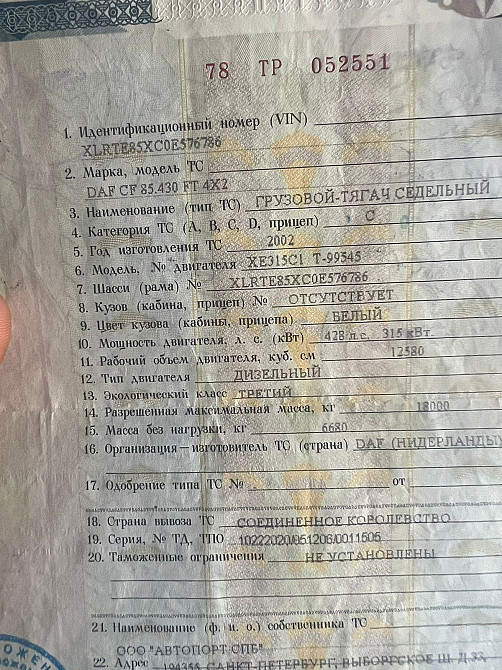 78 ТР 052551
1. Идентификационный номер (VIN)
XLRTE85XC0E576786
2. Марка, модель ТС
DAF CF 85.430 FT 4X2
3. Наименование (тип ТС) ГРУЗОВОЙ-ТЯГАЧ СЕДЕЛЬНЫЙ
4. Категория ТС (А, В, С, D, прицеп) С
5. Год изготовления ТС 2002
6. Модель, № двигателя XE315C1 T-99545
7. Шасси (рама) № XLRTE85XC0E576786
8. Кузов (кабина, прицеп) № ОТСУТСТВУЕТ
9. Цвет кузова (кабины, прицепа) БЕЛЫЙ
10. Мощность двигателя, л. с. (кВт) 428 л.с. 315 кВт.
11. Рабочий объем двигателя, куб. см 12580
12. Тип двигателя ДИЗЕЛЬНЫЙ
13. Экологический класс ТРЕТИЙ
14. Разрешенная максимальная масса, кг 18000
15. Масса без нагрузки, кг 6680
16. Организация – изготовитель ТС (страна) DAF (НИДЕРЛАНДЫ)
17. Одобрение типа ТС № от
18. Страна вывоза ТС СОЕДИНЕННОЕ КОРОЛЕВСТВО
19. Серия, № ТД, ТПО 10222020/051206/0011505
20. Таможенные ограничения НЕ УСТАНОВЛЕНЫ
21. Наименование (ф. и. о.) собственника ТС
ООО "АВТОПОРТ.СПБ"
22. Адрес 194355, САНКТ-ПЕТЕРБУРГ, ВЫБОРГСКОЕ Ш, Д.33,